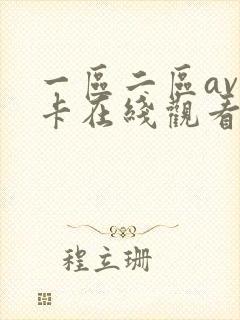 一區二區av
卡在綫觀看
程立珊